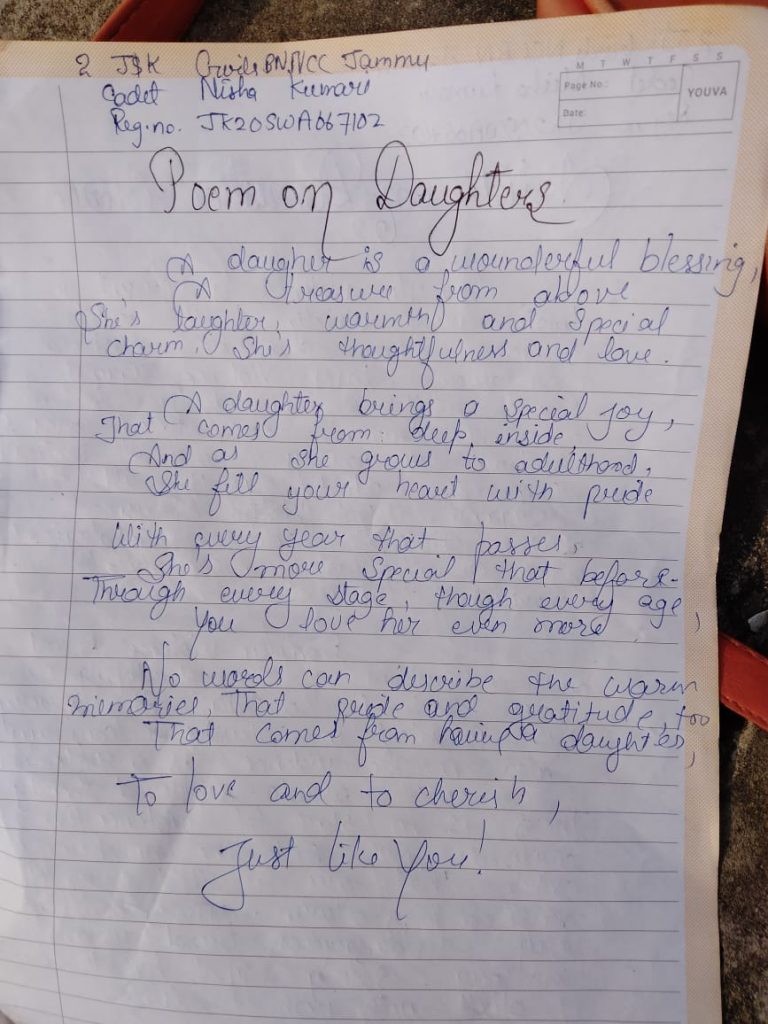 2 J&K Girls BN NCC Jammu
Cadet Nisha Kumari
Reg.no. JK20SWA667102
M T W T F S S
Page No.:
YOUVA
Date:
Poem on Daughters
A daugher is a wounderful blessing,
A treasure from above
She's laughter, warmth and special
charm, She's thoughtfulness and love.
A daughter brings a special joy,
That comes from deep inside,
And as she grows to adulthood,
She fill your heart with pride
With every year that passes,
She's more special that before.
Through every stage, though every age,
You love her even more
No words can describe the warm
memories, That pride and gratitude, too
That comes from having a daughter,
To love and to cherish,
Just like You!